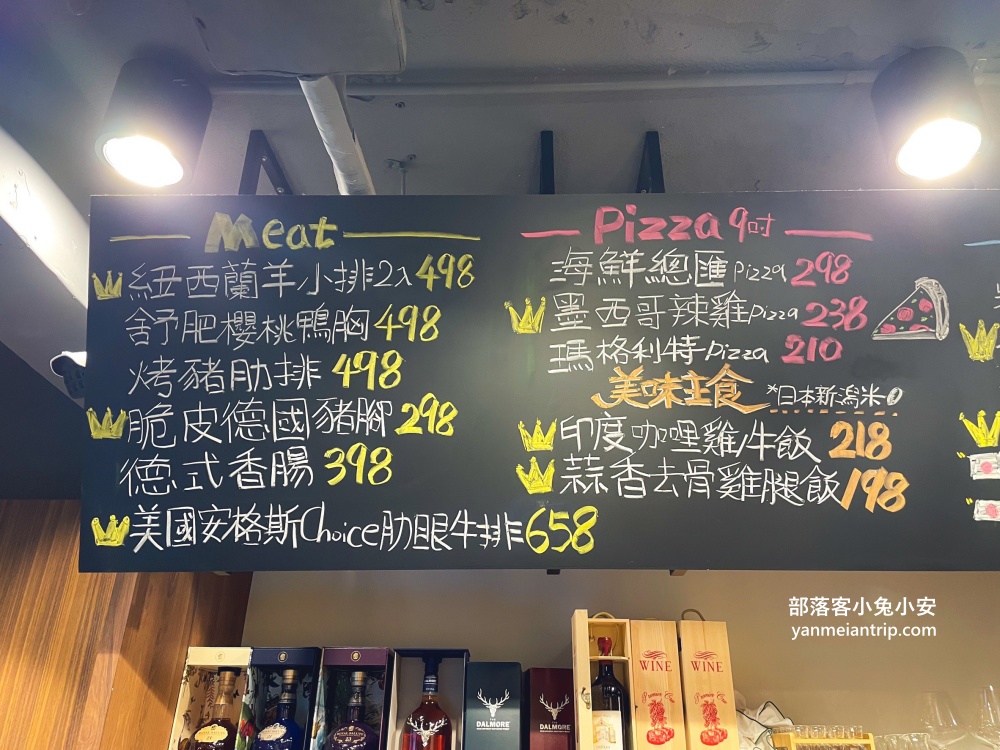 Meat
紐西蘭羊小排2入498
舒肥櫻桃鴨胸498
烤豬肋排 498
脆皮德國豬腳298
德式香腸 398
美國安格斯Choice肋眼牛排658
Pizza 9吋
海鮮總匯Pizza 298
墨西哥辣雞Pizza 238
瑪格利特Pizza 210
美味主食 *日本新潟米
印度咖哩雞/牛飯 218
蒜香去骨雞腿飯198
部落客小兔小安
yanmeiantrip.com
WINE
WINE
DALMORE
DALMORE